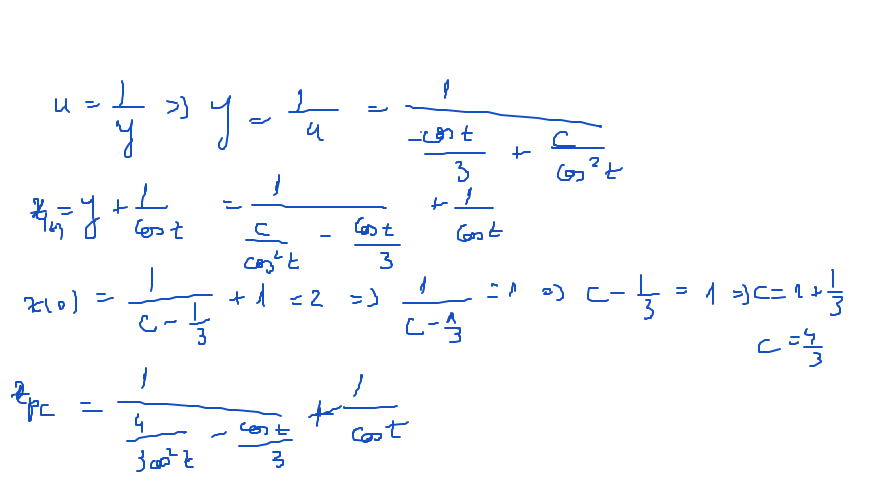 u = 1/y => y = 1/u = 1/(-cos t/3 + C/cos² t)
= y + 1/cos t = 1/(C/cos² t - cos t/3) + 1/cos t
x(0) = 1/(C - 1/3) + 1 = 2 => 1/(C - 1/3) = 1 => C - 1/3 = 1 => C = 1 + 1/3
C = 4/3
x_pc = 1/(4/3cos² t - cos t/3) + 1/cos t